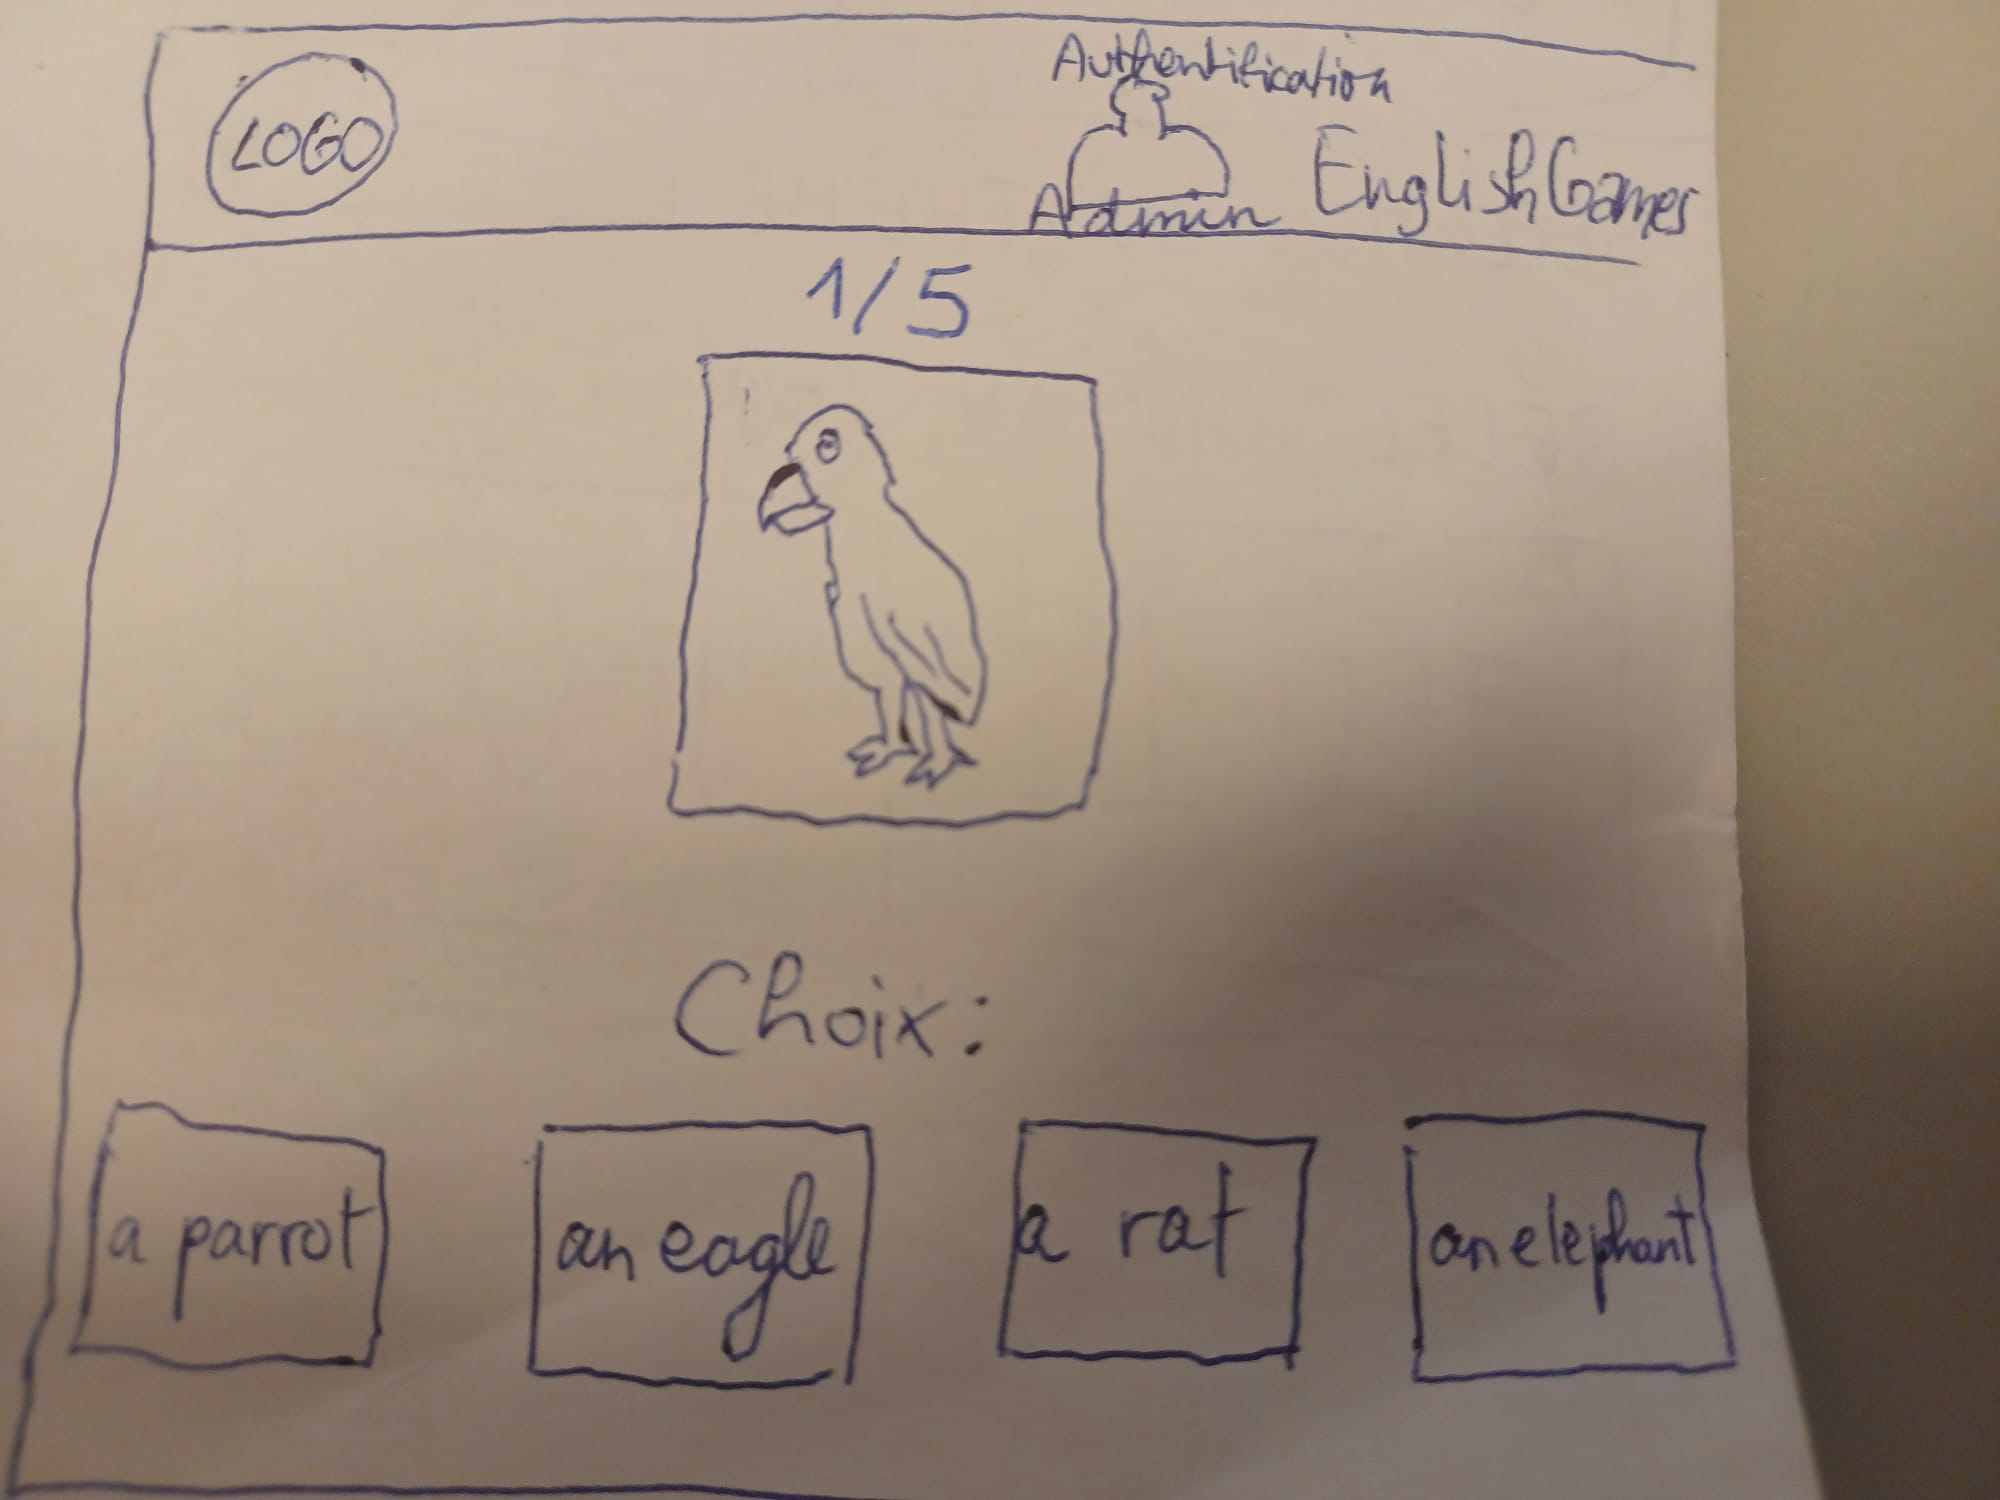 LOGO
Authentification
Admin
EnglishGames
1/5
Choix:
a parrot
an eagle
a rat
an elephant